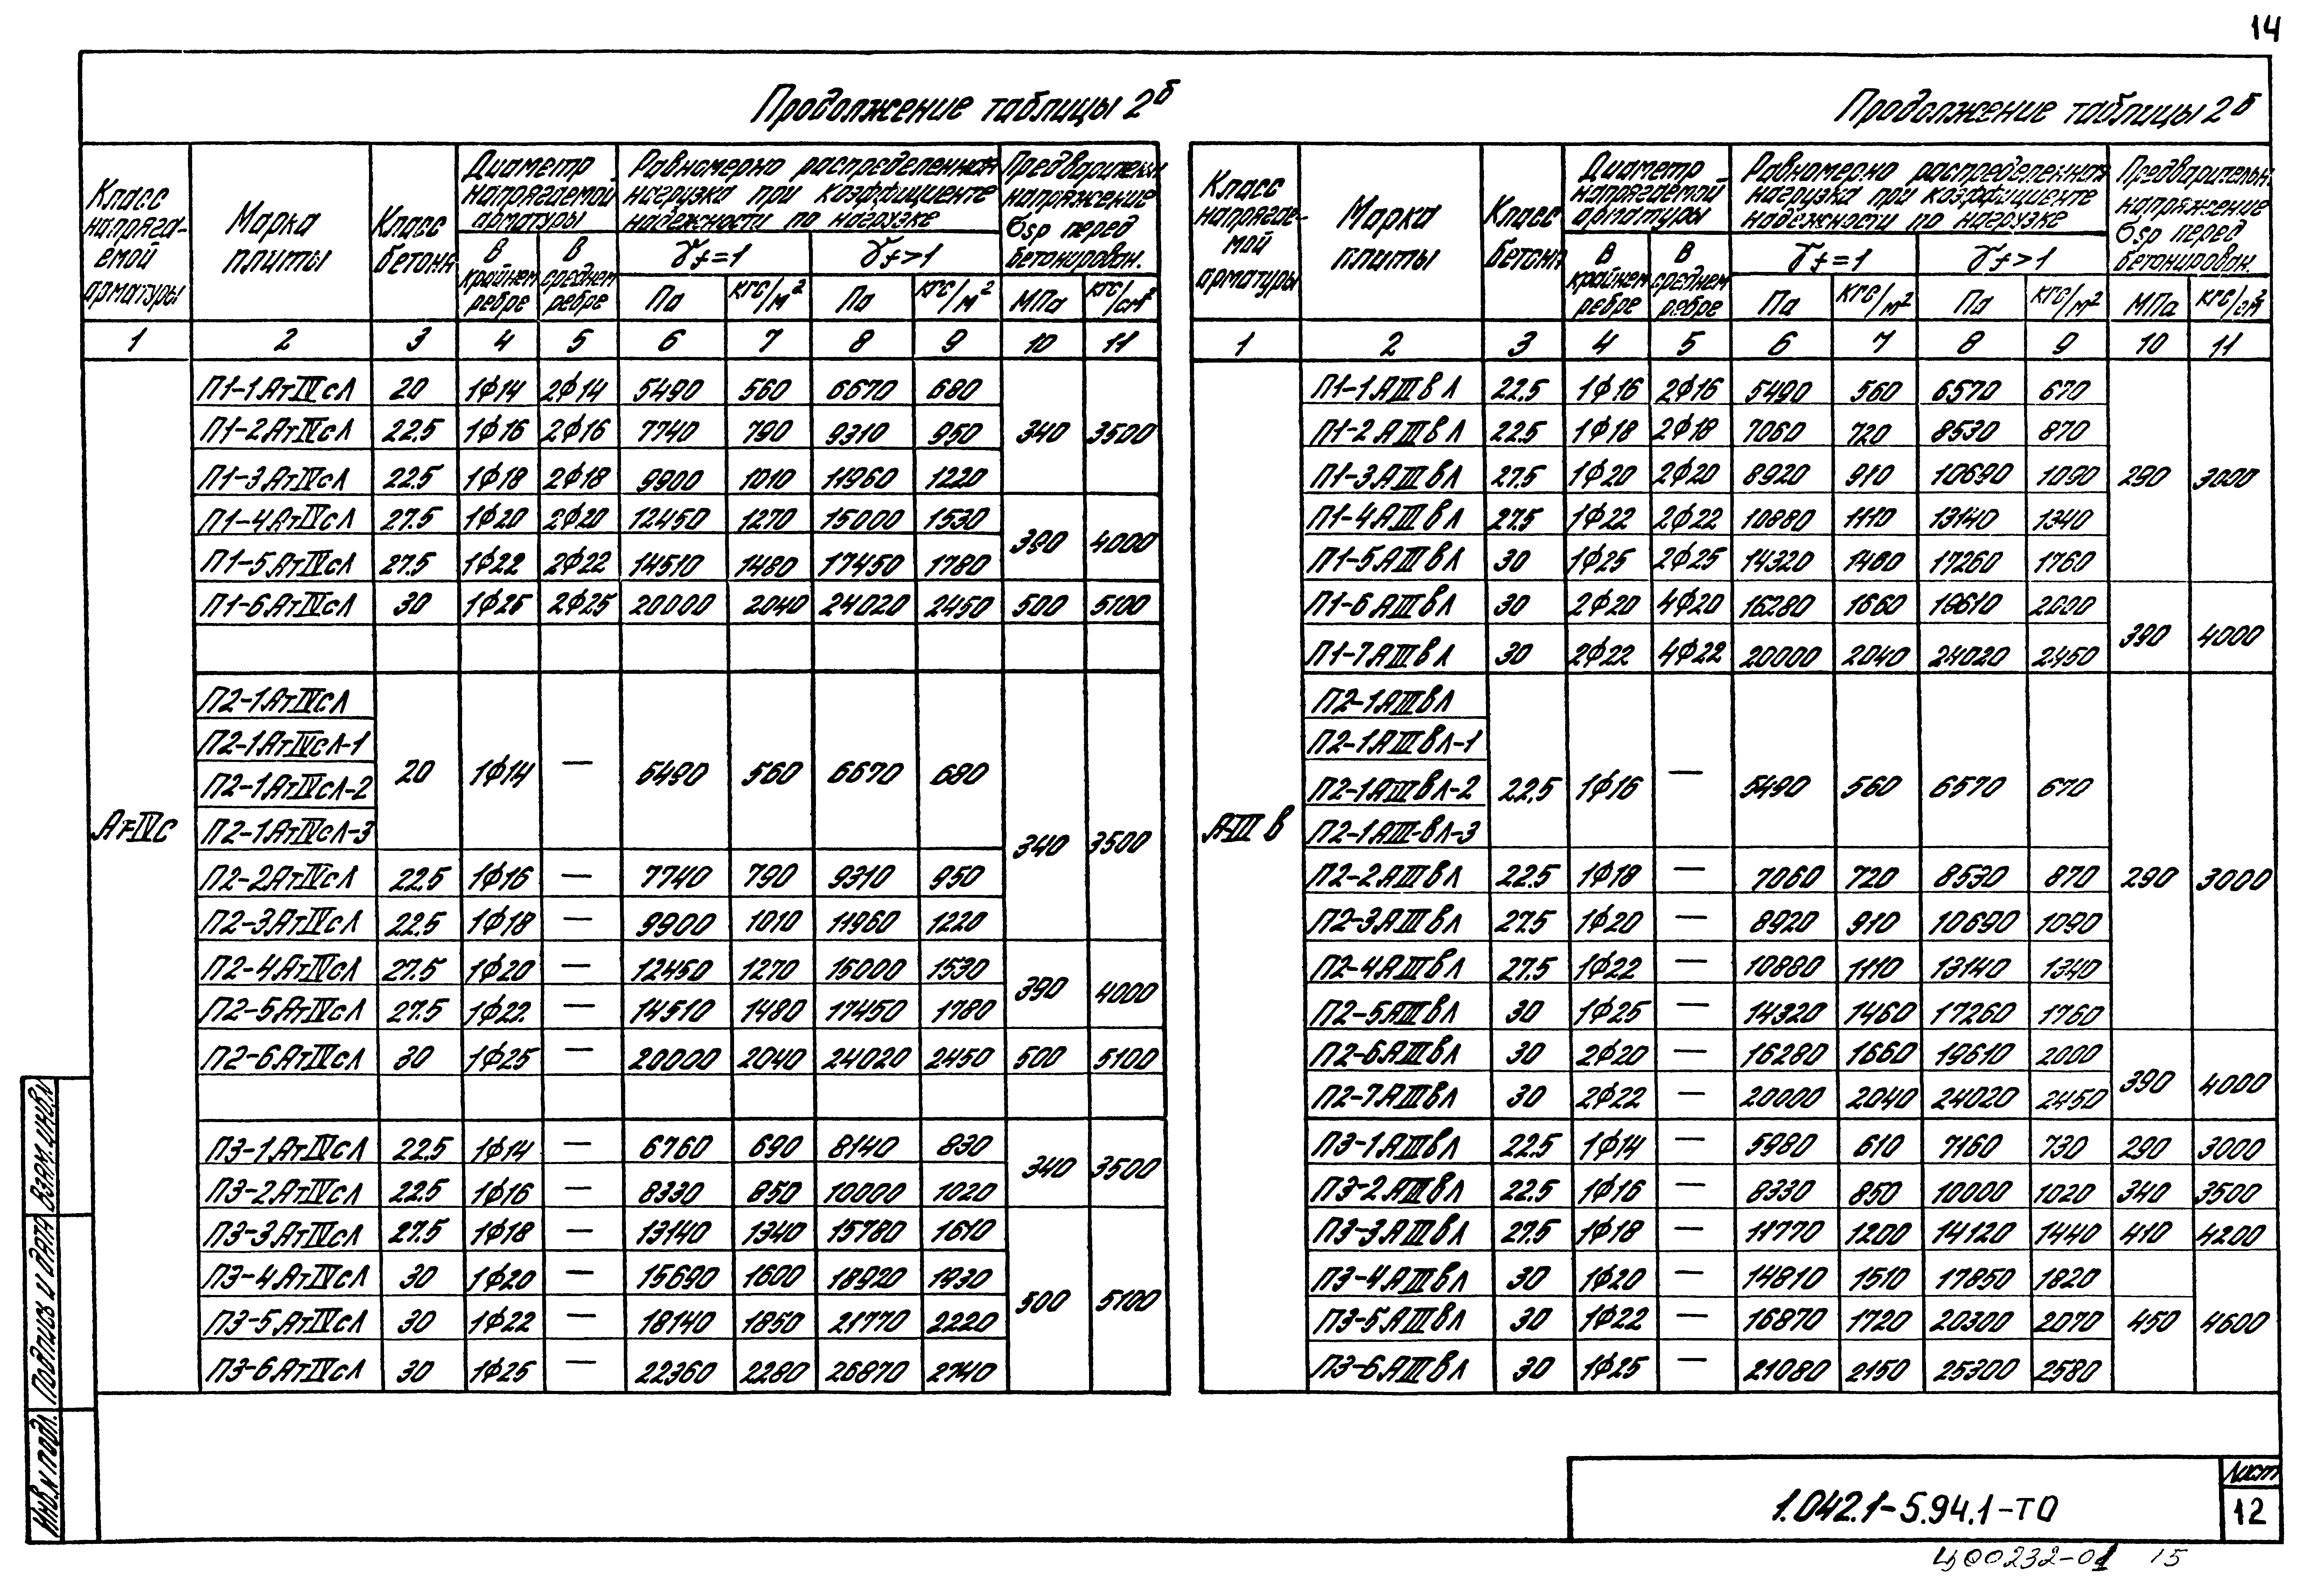 14
Продолжение таблицы 2б
Класс напрягаемой арматуры | Марка плиты | Класс бетона | Диаметр напрягаемой арматуры | Равномерно распределенная нагрузка при коэффициенте надежности по нагрузке | Предварительн. напряжение σsp перед бетонирован.
в крайнем ребре | в среднем ребре | γf=1 | γf>1
Па | кгс/м² | Па | кгс/м² | МПа | кгс/см²
1 2 3 4 5 6 7 8 9 10 11
Ат-IVС
П1-1АтIVсЛ 20 1ф14 2ф14 5490 560 6670 680 340 3500
П1-2АтIVсЛ 22.5 1ф16 2ф16 7740 790 9310 950
П1-3АтIVсЛ 22.5 1ф18 2ф18 9900 1010 11960 1220
П1-4АтIVсЛ 27.5 1ф20 2ф20 12450 1270 15000 1530 390 4000
П1-5АтIVсЛ 27.5 1ф22 2ф22 14510 1480 17450 1780
П1-6АтIVсЛ 30 1ф25 2ф25 20000 2040 24020 2450 500 5100
П2-1АтIVсЛ
П2-1АтIVсЛ-1
П2-1АтIVсЛ-2 20 1ф14 — 5490 560 6670 680
П2-1АтIVсЛ-3 340 3500
П2-2АтIVсЛ 22.5 1ф16 — 7740 790 9310 950
П2-3АтIVсЛ 22.5 1ф18 — 9900 1010 11960 1220
П2-4АтIVсЛ 27.5 1ф20 — 12450 1270 15000 1530 390 4000
П2-5АтIVсЛ 27.5 1ф22 — 14510 1480 17450 1780
П2-6АтIVсЛ 30 1ф25 — 20000 2040 24020 2450 500 5100
П3-1АтIVсЛ 22.5 1ф14 — 6760 690 8140 830 340 3500
П3-2АтIVсЛ 22.5 1ф16 — 8330 850 10000 1020
П3-3АтIVсЛ 27.5 1ф18 — 13140 1340 15780 1610
П3-4АтIVсЛ 30 1ф20 — 15690 1600 18920 1930 500 5100
П3-5АтIVсЛ 30 1ф22 — 18140 1850 21770 2220
П3-6АтIVсЛ 30 1ф25 — 22360 2280 26870 2740
Продолжение таблицы 2б
Класс напрягаемой арматуры | Марка плиты | Класс бетона | Диаметр напрягаемой арматуры | Равномерно распределенная нагрузка при коэффициенте надежности по нагрузке | Предварительн. напряжение σsp перед бетонирован.
в крайнем ребре | в среднем ребре | γf=1 | γf>1
Па | кгс/м² | Па | кгс/м² | МПа | кгс/см²
1 2 3 4 5 6 7 8 9 10 11
А-III в
П1-1АIIIвЛ 22.5 1ф16 2ф16 5490 560 6570 670
П1-2АIIIвЛ 22.5 1ф18 2ф18 7060 720 8530 870
П1-3АIIIвЛ 27.5 1ф20 2ф20 8920 910 10690 1090 290 3000
П1-4АIIIвЛ 27.5 1ф22 2ф22 10880 1110 13140 1340
П1-5АIIIвЛ 30 1ф25 2ф25 14320 1460 17260 1760
П1-6АIIIвЛ 30 2ф20 4ф20 16280 1660 19610 2000 390 4000
П1-7АIIIвЛ 30 2ф22 4ф22 20000 2040 24020 2450
П2-1АIIIвЛ
П2-1АIIIвЛ-1
П2-1АIIIвЛ-2 22.5 1ф16 — 5490 560 6570 670
П2-1АIII-вЛ-3
П2-2АIIIвЛ 22.5 1ф18 — 7060 720 8530 870 290 3000
П2-3АIIIвЛ 27.5 1ф20 — 8920 910 10690 1090
П2-4АIIIвЛ 27.5 1ф22 — 10880 1110 13140 1340
П2-5АIIIвЛ 30 1ф25 — 14320 1460 17260 1760
П2-6АIIIвЛ 30 2ф20 — 16280 1660 19610 2000 390 4000
П2-7АIIIвЛ 30 2ф22 — 20000 2040 24020 2450
П3-1АIIIвЛ 22.5 1ф14 — 5980 610 7160 730 290 3000
П3-2АIIIвЛ 22.5 1ф16 — 8330 850 10000 1020 340 3500
П3-3АIIIвЛ 27.5 1ф18 — 11770 1200 14120 1440 410 4200
П3-4АIIIвЛ 30 1ф20 — 14810 1510 17850 1820
П3-5АIIIвЛ 30 1ф22 — 16870 1720 20300 2070 450 4600
П3-6АIIIвЛ 30 1ф25 — 21080 2150 25300 2580
Инв.N подл. Подпись и дата Взам.инв.N
1.042.1-5.94.1-ТО
Лист
12
Ц00232-01 15